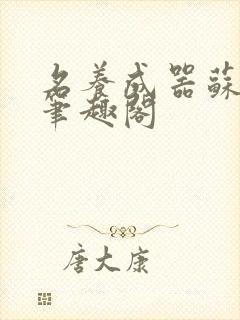 名養成器蘇
筆趣閣
唐大康